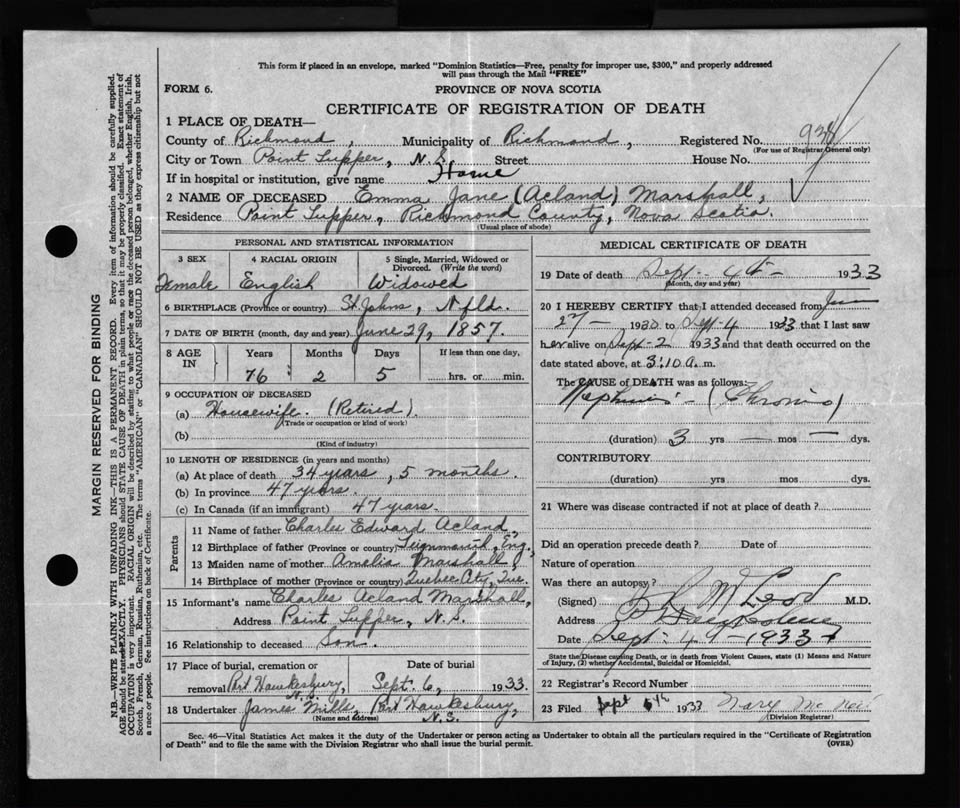 This form if placed in an envelope, marked "Dominion Statistics—Free, penalty for improper use, $300," and properly addressed
will pass through the Mail "FREE"
FORM 6.
PROVINCE OF NOVA SCOTIA
CERTIFICATE OF REGISTRATION OF DEATH
1 PLACE OF DEATH—
County of Richmond, Municipality of Richmond, Registered No.
(For use of Registrar General only)
City or Town Point Tupper, N.S. Street House No.
If in hospital or institution, give name Home
2 NAME OF DECEASED Emma Jane (Acland) Marshall,
Residence Point Tupper, Richmond County, Nova Scotia.
(Usual place of abode)
PERSONAL AND STATISTICAL INFORMATION
3 SEX 4 RACIAL ORIGIN 5 Single, Married, Widowed or
Divorced. (Write the word)
Female English Widowed
6 BIRTHPLACE (Province or country) St. Johns, Nfld.
7 DATE OF BIRTH (month, day and year) June 29, 1857.
8 AGE IN Years Months Days If less than one day,
76 2 5 hrs. or min.
9 OCCUPATION OF DECEASED
(a) Housewife. (Retired)
(Trade or occupation or kind of work)
(b)
(Kind of industry)
10 LENGTH OF RESIDENCE (in years and months)
(a) At place of death 34 years, 5 months.
(b) In province 47 years.
(c) In Canada (if an immigrant) 47 years.
Parents
11 Name of father Charles Edward Acland,
12 Birthplace of father (Province or country) Teignmouth, Eng.,
13 Maiden name of mother Amelia Marshall
14 Birthplace of mother (Province or country) Quebec City, Que.
15 Informant's name Charles Acland Marshall,
Address Point Tupper, N.S.
16 Relationship to deceased Son.
17 Place of burial, cremation or Date of burial
removal Port Hawkesbury, N.S. Sept. 6, 1933.
18 Undertaker James Mills, Port Hawkesbury,
(Name and address) N.S.
MEDICAL CERTIFICATE OF DEATH
19 Date of death Sept 4th 1933
(Month, day and year)
20 I HEREBY CERTIFY that I attended deceased from
27 – 1930 to Sept 4 1933 that I last saw
her alive on Sept 2 1933 and that death occurred on the
date stated above, at 3:10 a. m.
The CAUSE of DEATH was as follows:
Nephritis – (Chronic).
(duration) 3 yrs — mos — dys.
CONTRIBUTORY
(duration) yrs. mos. dys.
21 Where was disease contracted if not at place of death?
Did an operation precede death? Date of
Nature of operation
Was there an autopsy?
(Signed) McLeod M.D.
Address
Date Sept 4 – 1933
State the Disease causing Death, or in death from Violent Causes, state (1) Means and Nature
of Injury, (2) whether Accidental, Suicidal or Homicidal.
22 Registrar's Record Number
23 Filed Sept 6th 1933
(Division Registrar)
Sec. 46—Vital Statistics Act makes it the duty of the Undertaker or person acting as Undertaker to obtain all the particulars required in the "Certificate of Registration
of Death" and to file the same with the Division Registrar who shall issue the burial permit.
(OVER)
MARGIN RESERVED FOR BINDING
N.B.—WRITE PLAINLY WITH UNFADING INK—THIS IS A PERMANENT RECORD. Every item of information should be carefully supplied.
AGE should be stated EXACTLY. PHYSICIANS should STATE CAUSE OF DEATH in plain terms, so that it may be properly classified. Exact statement of
OCCUPATION is very important. RACIAL ORIGIN will be described by stating to what people or race the deceased person belonged, whether English, Irish,
Scotch, French, German, Russian, Ruthenian, etc. The terms "AMERICAN" or "CANADIAN" SHOULD NOT BE USED as they express citizenship but not
a race or people. See instructions on back of Certificate.